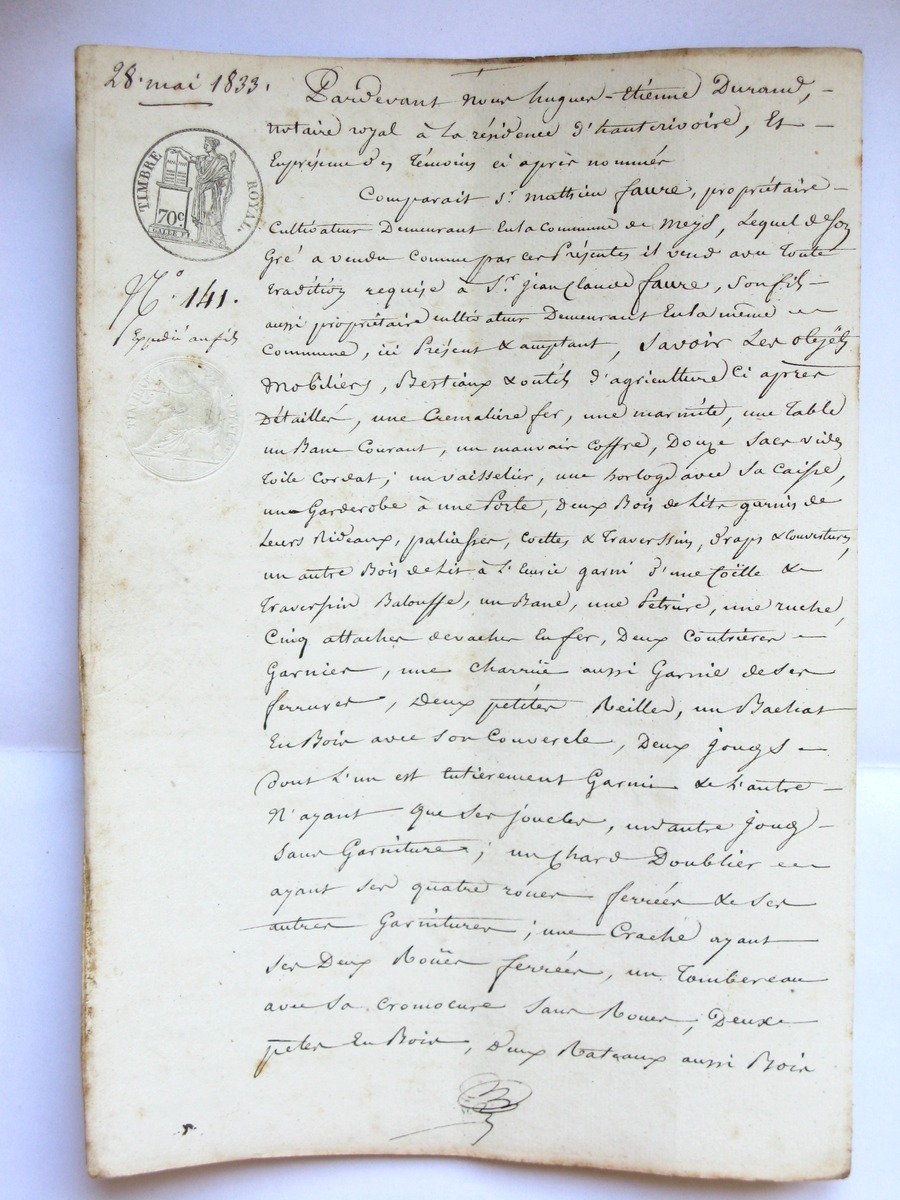 28. mai 1833.
TIMBRE ROYAL
70c
N° 141.
Expédié au fils
Pardevant Nous hugues-étienne Durand,
notaire royal à la résidence d'hauterivoire, Et
En présence des Témoins ci après nommés
Comparait Sr. mathieu faure, propriétaire
Cultivateur Demeurant En la Commune de Meys, Lequel de son
Gré a vendu comme par ces Présentes il vend avec Toute
tradition requise à Sr. jean Claude faure, son fils
aussi propriétaire cultivateur Demeurant En la même
Commune, ici Présent & acceptant, Savoir Les objets
Mobiliers, Bestiaux & outils d'agriculture Ci après
Détaillés, une Cremalière fer, une marmite, une Table
un Banc Courant, un mauvais coffre, Douze Sacs vides
Toile Cordat; un vaisselier, une horloge avec Sa Caisse,
une Garderobe à une Porte, Deux Bois de Lits garnis de
Leurs Rideaux, paliasses, Coëttes & Traverssins, draps & Couvertures,
un autre Bois de Lit à L'Ecurie garni d'une Coëtte &
Traverssin Balouffe, un Banc, une Petrière, une ruche,
Cinq attaches de vaches En fer, Deux Coutrières
Garnies, une charruë aussi Garnie de ses
ferrures, Deux petites Reilles, un Bachat
En Bois avec son Couvercle, Deux jougs
Dont L'un est Entièrement Garni & L'autre
N'ayant que Ses joucles, un autre joug
Sans Garniture; un Chard Doublier
ayant ses quatre roues ferrées & ses
autres Garnitures; une Crache ayant
Ses Deux Rouës ferrées, un Tombereau
avec Sa Sans Roues, Deux
En Bois, Deux Rateaux aussi Bois